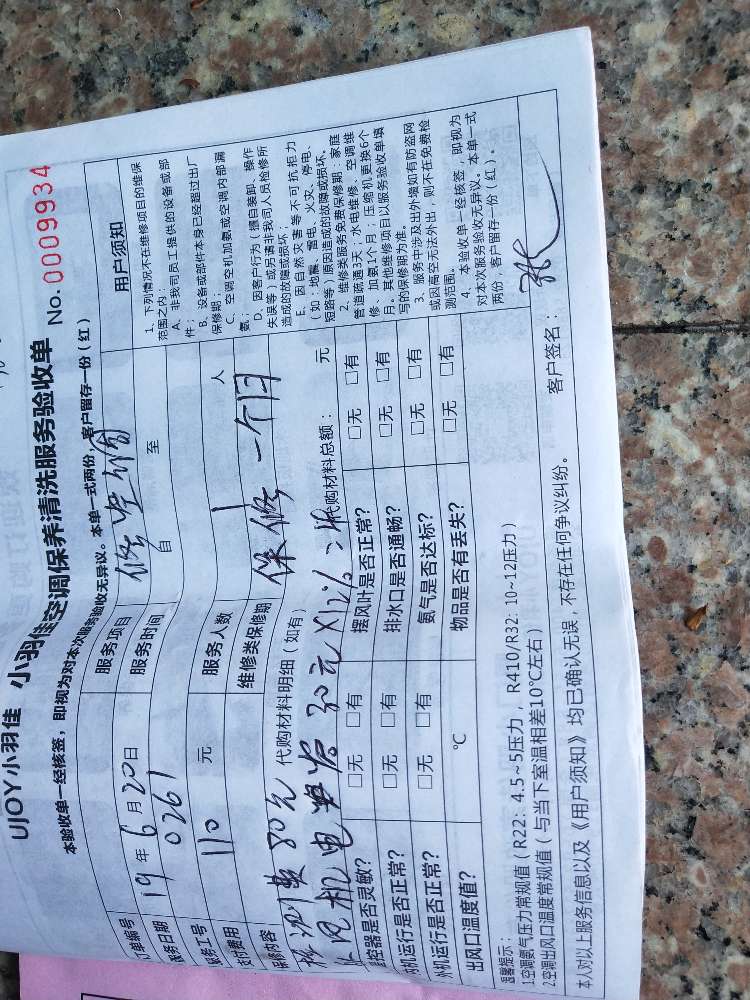 UJOY小羽佳 小羽佳空调保养清洗服务验收单
No. 0009934
本验收单一经核签，即视为对本次服务验收无异议。本单一式两份，客户留存一份（红）
订单编号
服务项目 修空调
服务日期 19年6月20日
服务时间 自 至
服务工号 0261
服务人数 1 人
支付费用 110 元
维修类保修期 保修一个月
维修内容
代购材料明细（如有）
代购材料总额： 元
检测费80元
风机电容30元X12%
遥控器是否灵敏？ □无 □有 摆风叶是否正常？ □无 □有
内机运行是否正常？ □无 □有 排水口是否通畅？ □无 □有
外机运行是否正常？ □无 □有 氨气是否达标？ □无 □有
出风口温度值？ ℃ 物品是否有丢失？ □无 □有
用户须知
1、下列情况不在维修项目的维保
范围之内：
A、非我司员工提供的设备或部
件
B、设备或部件本身已经超过出厂
保修期；
C、空调空机加氨或空调内部漏
氨；
D、因客户行为（擅自装卸、操作
失误等）或另请非我司人员检修所
造成的故障或损坏；
E、因自然灾害等不可抗拒力
（如：地震、雷电、火灾、停电、
短路等）原因造成的故障或损坏。
2、维修类服务免费保修期：家庭
管道疏通3天；水电维修、空调维
修、加氨1个月；压缩机更换6个
月。其他维修项目以服务验收单填
写的保修期为准。
3、服务中涉及出外墙如有防盗网
或因高空无法外出，则不在免费检
测范围。
4、本验收单一经核签，即视为
对本次服务验收无异议。本单一式
两份，客户留存一份（红）。
温馨提示：
1.空调氨气压力常规值（R22：4.5~5压力，R410/R32：10~12压力）
2.空调出风口温度常规值（与当下室温相差10℃左右）
本人对以上服务信息以及《用户须知》均已确认无误，不存在任何争议纠纷。
客户签名：